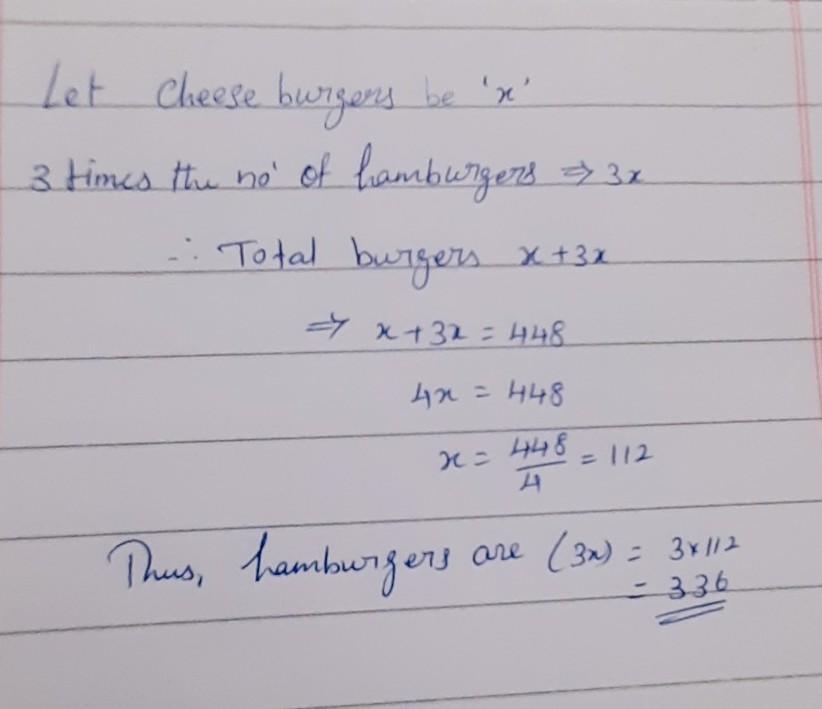 Let Cheese burgers be 'x'
3 times the no' of hamburgers ⇒ 3x
∴ Total burgers x + 3x
⇒ x + 3x = 448
4x = 448
x = 448/4 = 112
Thus, hamburgers are (3x) = 3x112
= 336